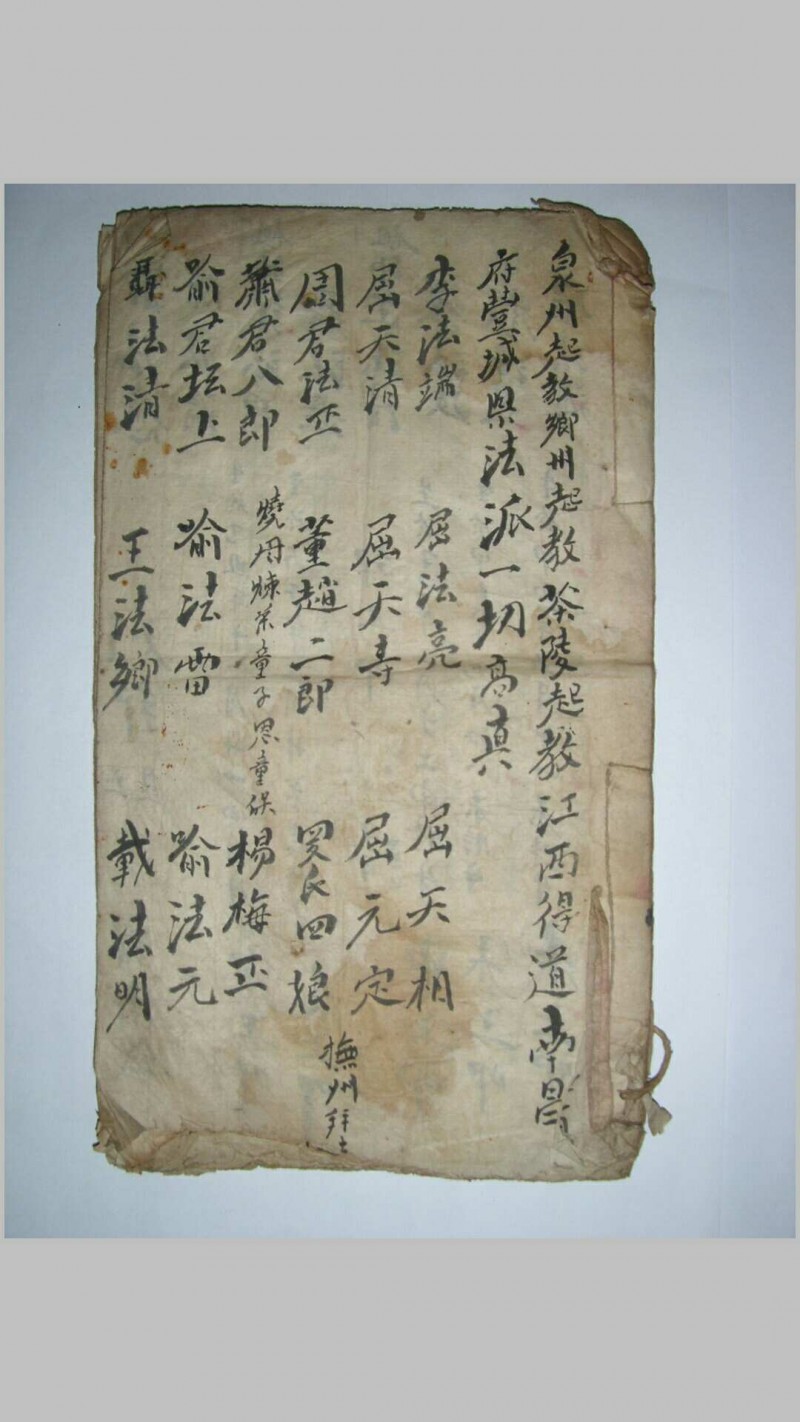 泉州起教鄉州起教茶陵起教江西得道南昌
府豐城県法派一切高真
李法端 屈法亮 屈天相
屈天清 屈天寿 屈元定
周君法 董趙二郎 罗氏四娘 撫州
蕭君八郎 燒丹煉茶童子思童 楊梅
喻君坛上 喻法雷 喻法元
聶法清 王法鄉 載法明